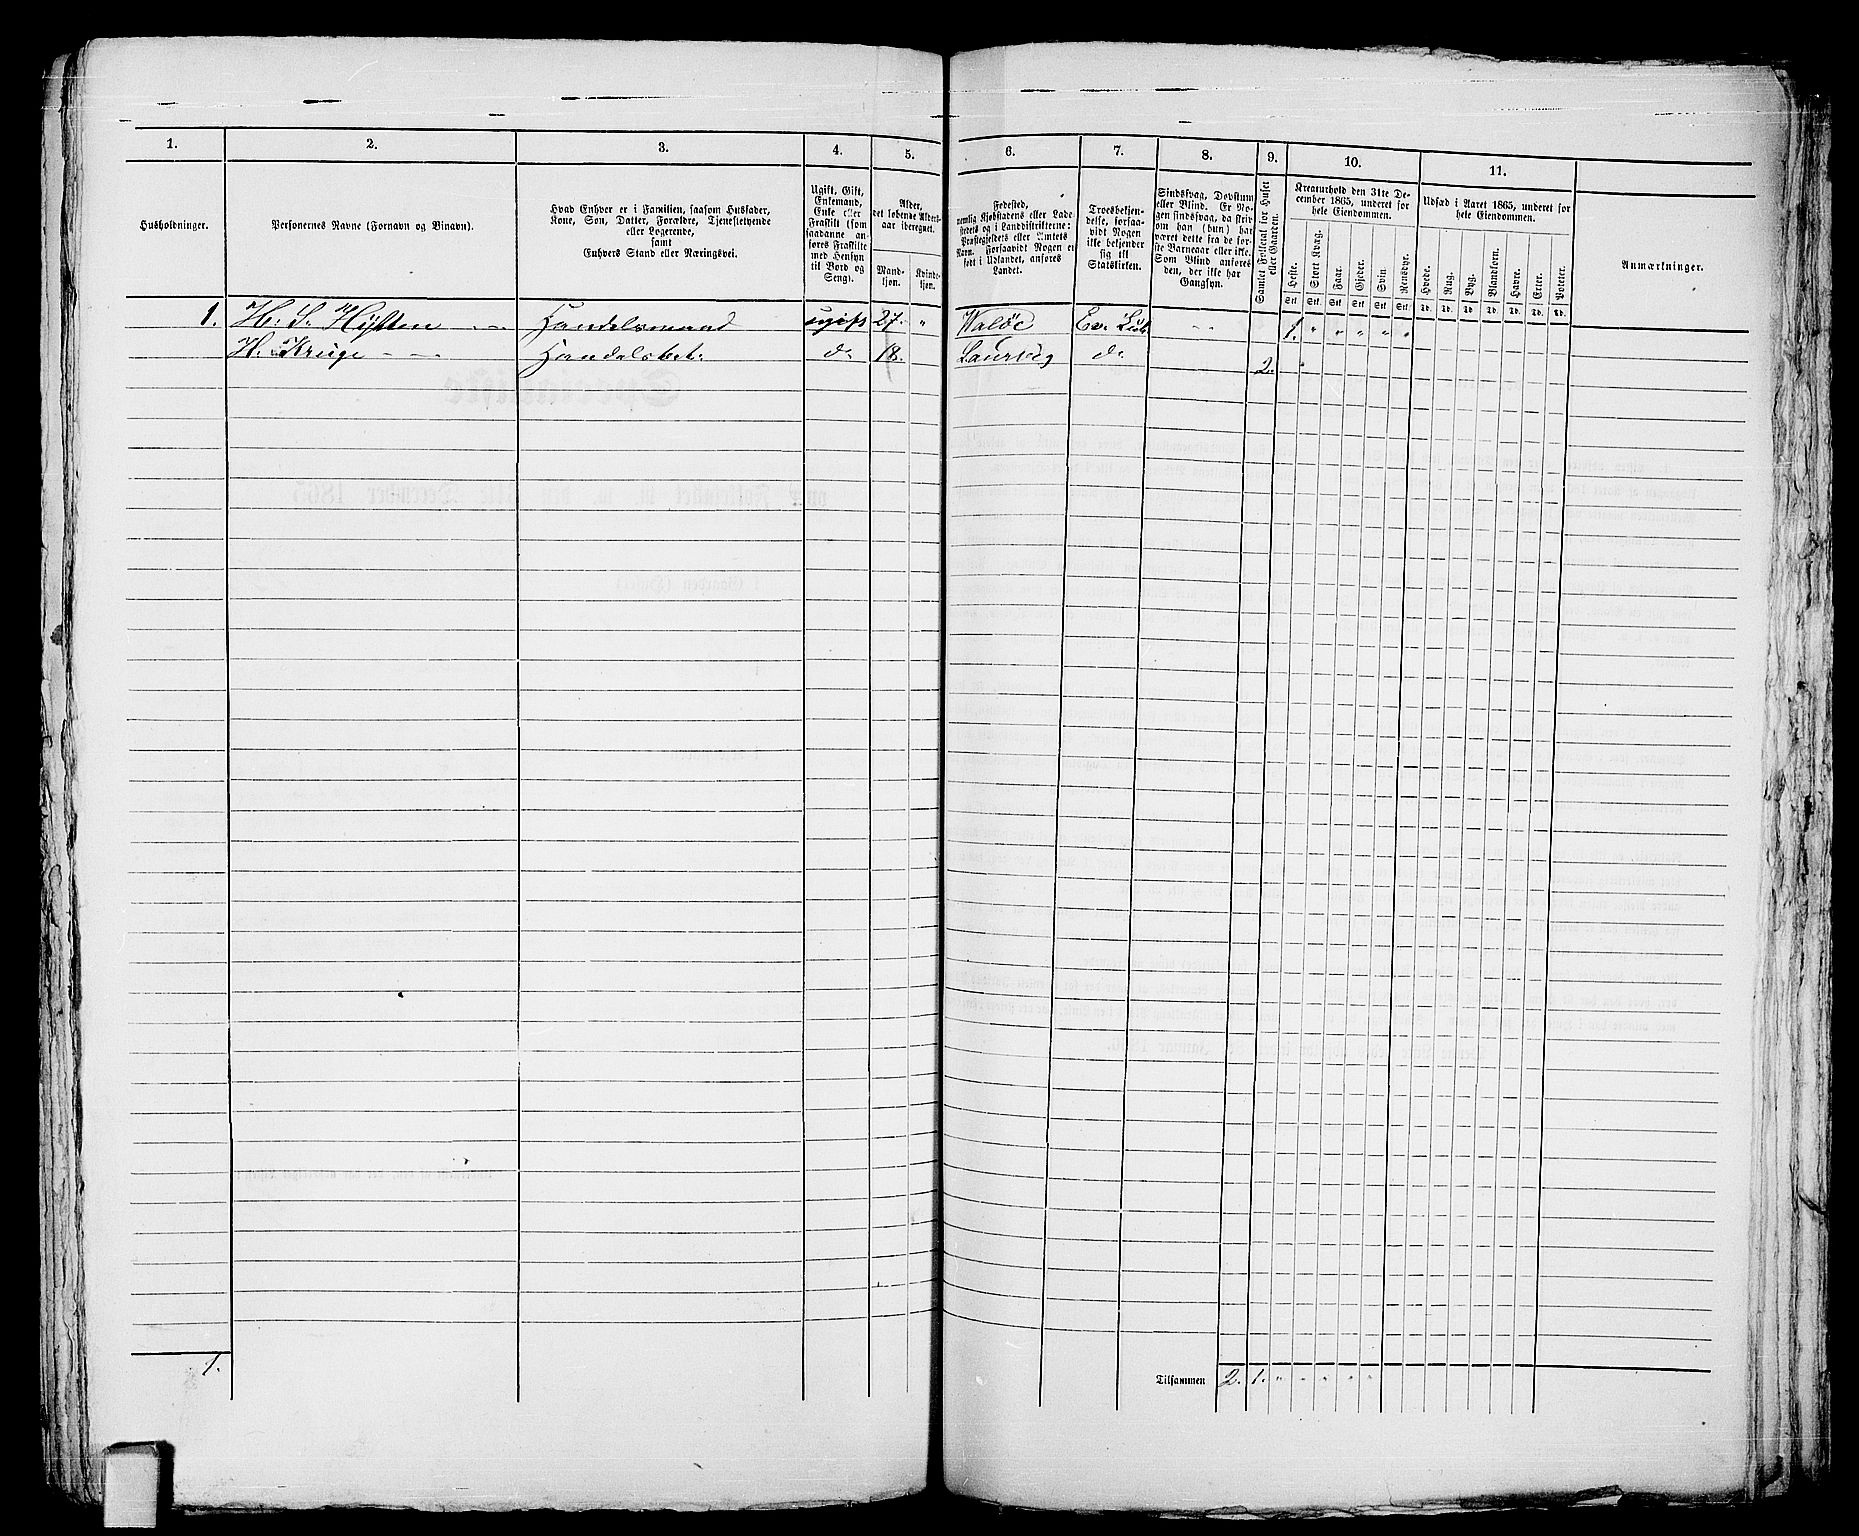 1. 2. 3. 4. 5. 6. 7. 8. 9. 10. 11.
Husholdninger.
Personernes Navne (Fornavn og Binavn).
Hvad Enhver er i Familien, saasom Husfader,
Kone, Søn, Datter, Forældre, Tjenestetyende
eller Logerende,
samt
Enhvers Stand eller Næringsvei.
Ugift, Gift,
Enkemand,
Enke eller
Fraskilt (som
saadanne an-
føres Fraskilte
med Hensyn
til Bord og
Seng).
Alder,
det løbende Alders-
aar iberegnet.
Mand-
kjøn.
Kvinde-
kjøn.
Fødested,
nemlig Kjøbstadens eller Lade-
stedets og i Landdistrikterne:
Præstegjeldets eller Amtets
Navn. Forsaavidt Nogen er
født i Udlandet, anføres
Landet.
Troesbekjen-
delse, forsaa-
vidt Nogen
ikke bekjender
sig til
Statskirken.
Sindssvag, Døvstum
eller Blind. Er No-
gen sindssvag, da skriv
om han (hun) har
været dette fra de før-
ste Barneaar eller ikke.
Som Blind anføres
den, der ikke har
Gangsyn.
Samlet Folketal for Huset
eller Gaarden.
Kreaturhold den 31te De-
cember 1865, underet for
hele Eiendommen.
Heste. Stort Kvæg. Faar. Gjeder. Svin. Rensdyr.
Stk. Stk. Stk. Stk. Stk. Stk.
Udsæd i Aaret 1865, underet for
hele Eiendommen.
Hvede. Rug. Byg. Blandkorn. Havre. Erter. Poteter.
Td. Td. Td. Td. Td. Td. Td.
Anmærkninger.
1. H. S. Høften Handelsmand ugift 27. " Waløe Ev. Luth " " 1. " " " " "
H. Kruge Handelsbet. do 18. Laurvig do
2.
1.
Tilsammen 2. 1. " " " " "